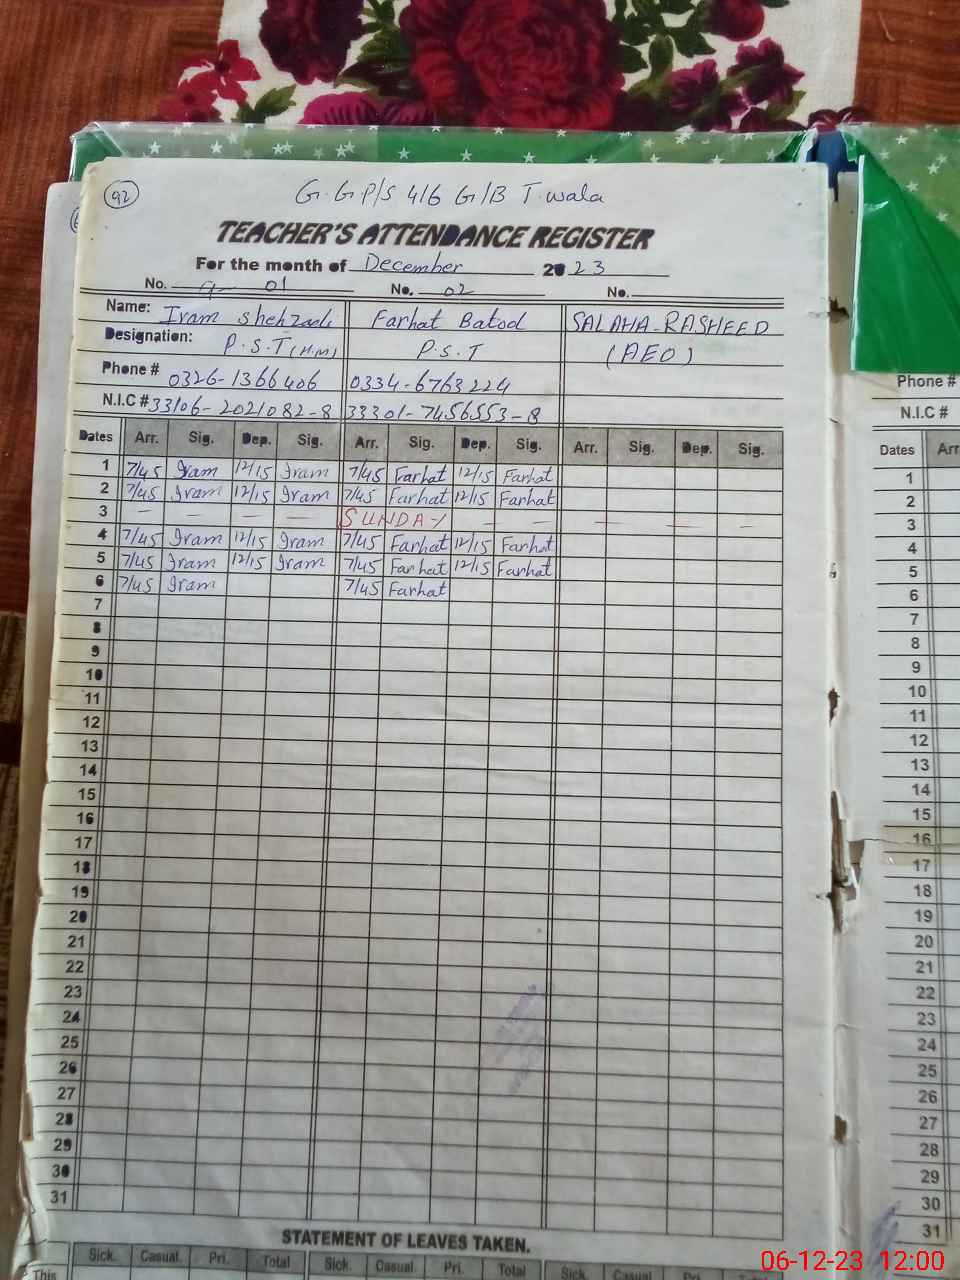 92
G.G.P/S 416 G/B T.wala
TEACHER'S ATTENDANCE REGISTER
For the month of December 2023
No. 01 No. 02 No.
Name: Iram Shehzadi Farhat Batool SALAHA-RASHEED
Designation: P.S.T (H.M) P.S.T (AEO)
Phone # 0326-1366406 0334-6763224
N.I.C # 33106-2021082-8 33301-7456553-8
Dates Arr. Sig. Dep. Sig. Arr. Sig. Dep. Sig. Arr. Sig. Dep. Sig.
1 7/45 Iram 12/15 Iram 7/45 Farhat 12/15 Farhat
2 7/45 Iram 12/15 Iram 7/45 Farhat 12/15 Farhat
3 — — — — SUNDAY — — — — — —
4 7/45 Iram 12/15 Iram 7/45 Farhat 12/15 Farhat
5 7/45 Iram 12/15 Iram 7/45 Farhat 12/15 Farhat
6 7/45 Iram 7/45 Farhat
7
8
9
10
11
12
13
14
15
16
17
18
19
20
21
22
23
24
25
26
27
28
29
30
31
STATEMENT OF LEAVES TAKEN.
Sick. Casual. Pri. Total Sick. Casual. Pri. Total Sick. Casual. Pri.
This
Phone #
N.I.C #
Dates Arr
1
2
3
4
5
6
7
8
9
10
11
12
13
14
15
16
17
18
19
20
21
22
23
24
25
26
27
28
29
30
31
06-12-23 12:00